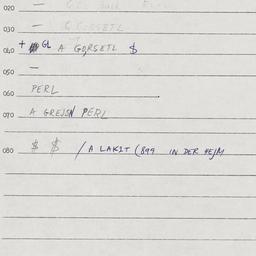 020 —
030 —
040 + GL A GORSETL $
050 —
060 PERL
070 A GREJON PERL
080 $ $ / A LAKIT (899 IN DER HEJM